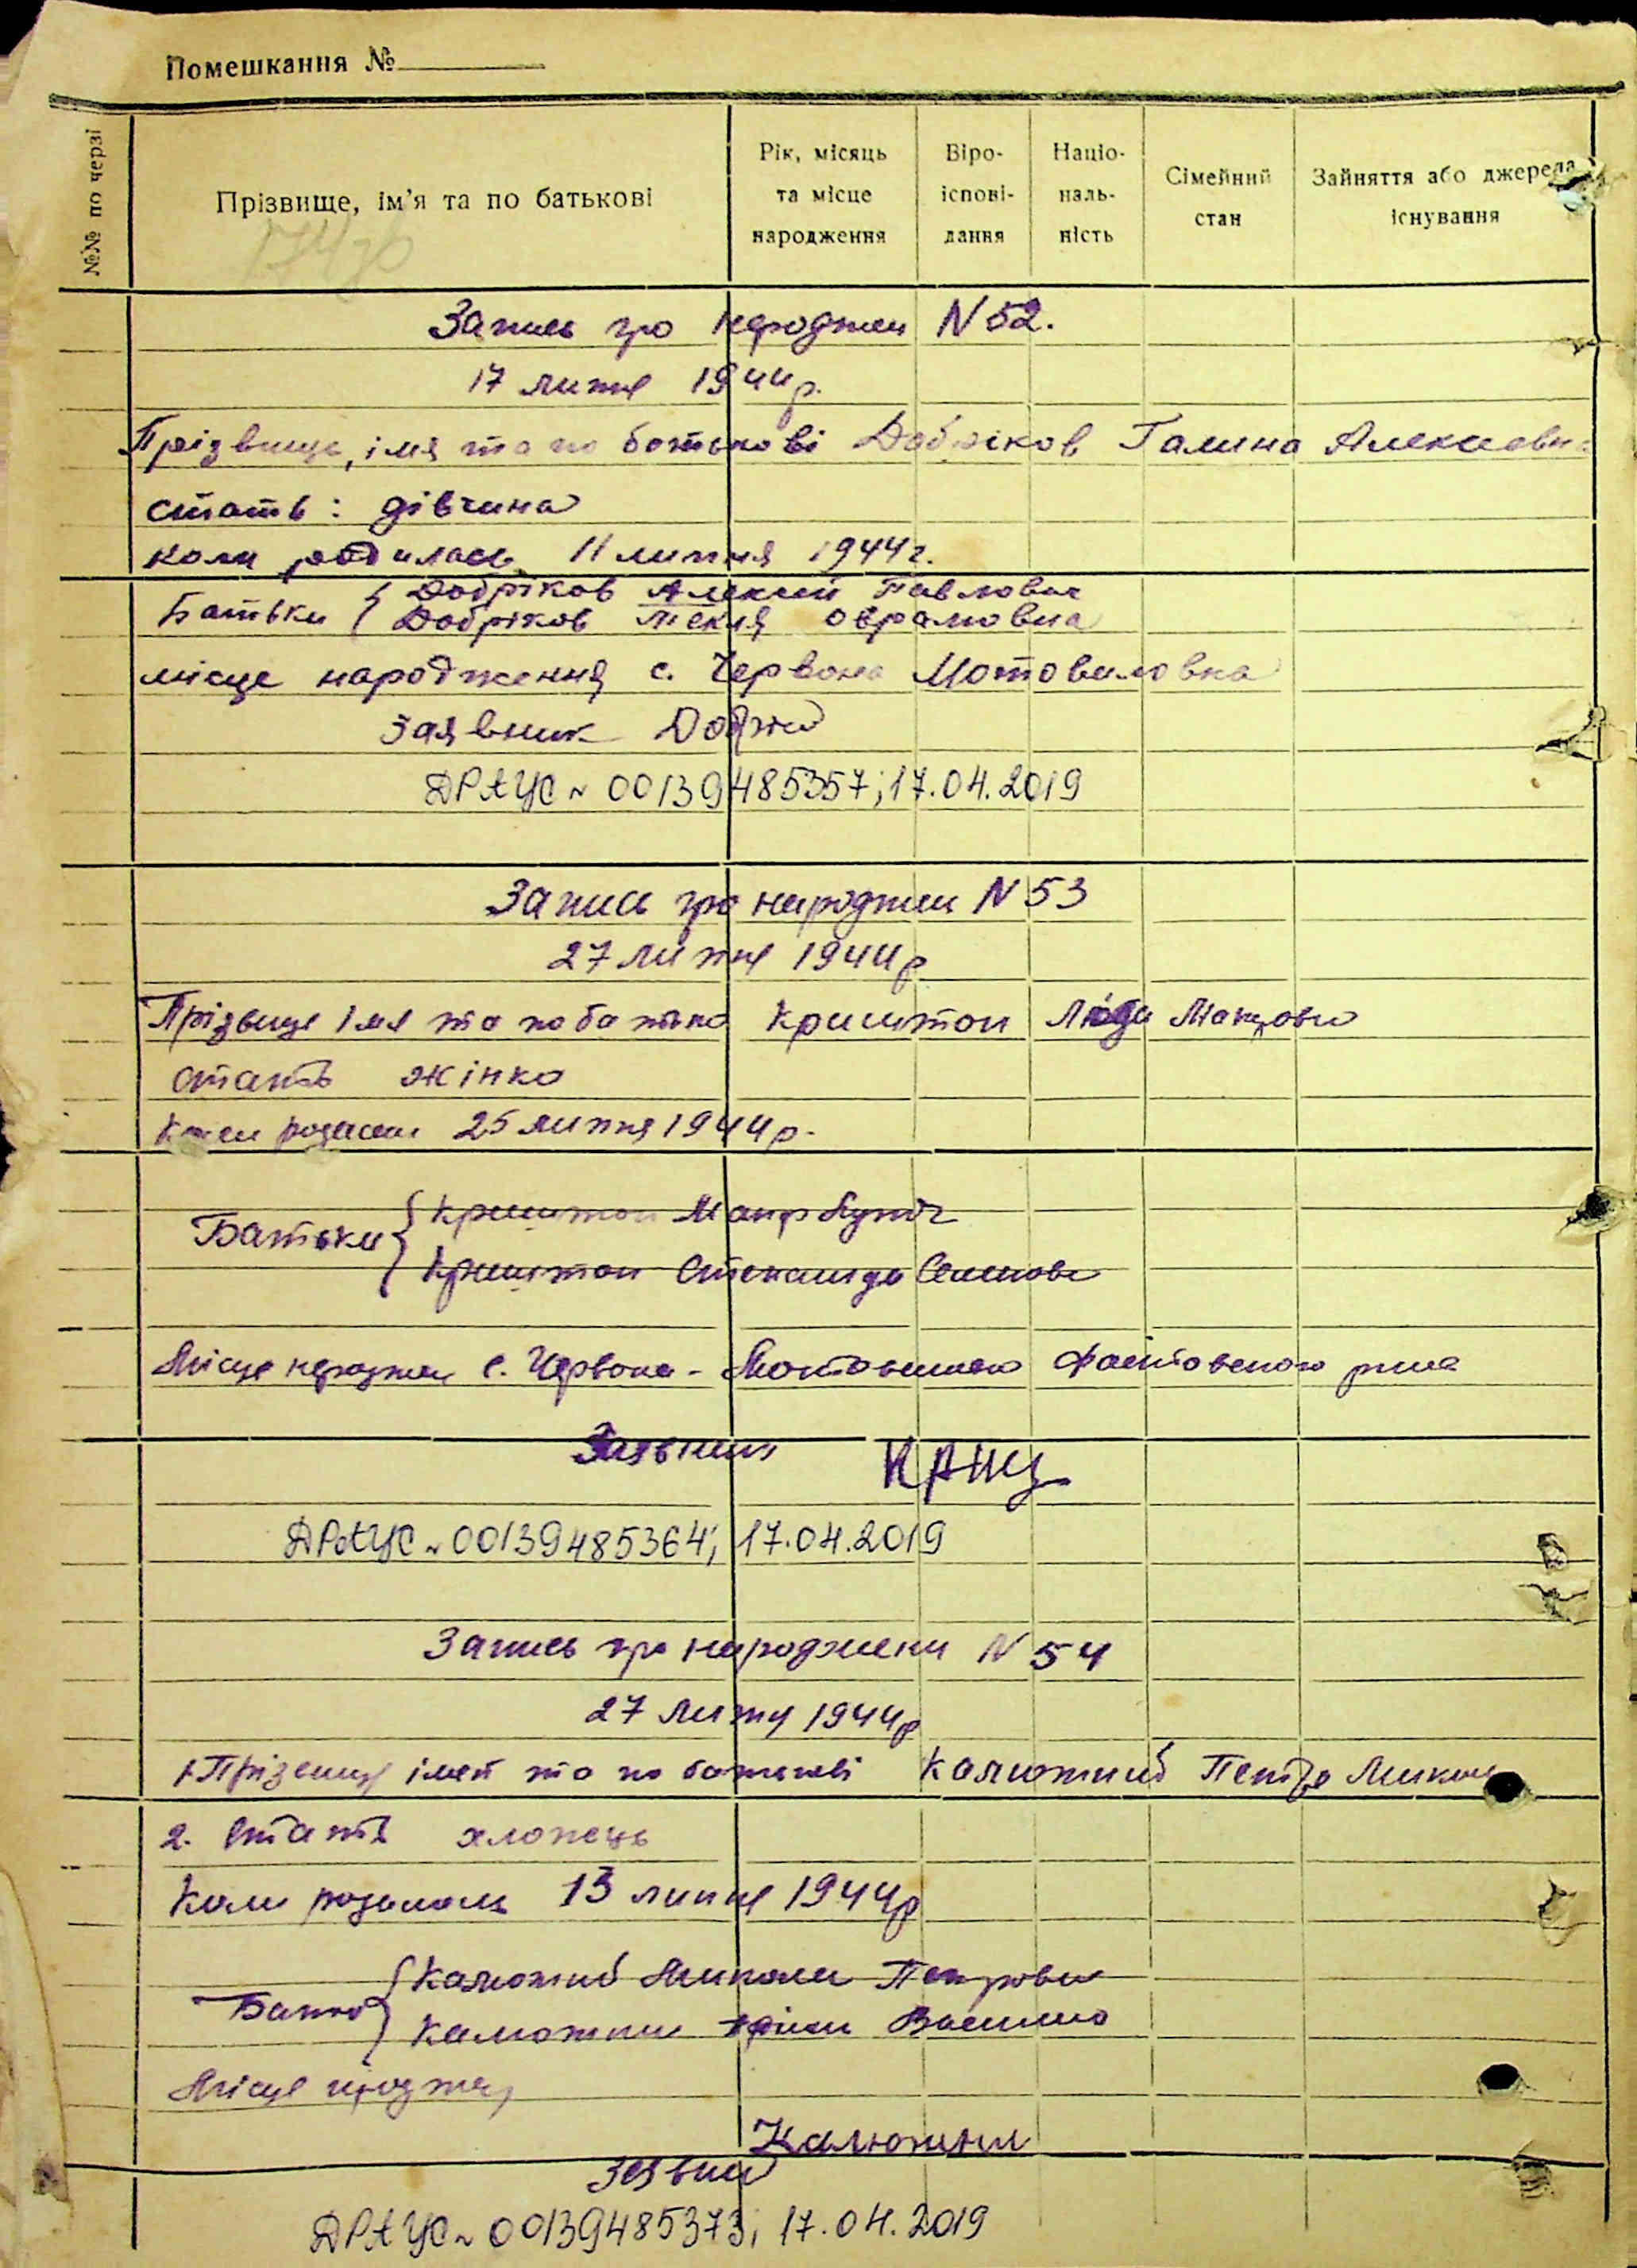 Помешкання №
№№ по черзі
Прізвище, ім'я та по батькові
Рік, місяць та місце народження
Віро-іспові-дання
Націо-наль-ність
Сімейний стан
Зайняття або джерела існування
Запись про народжен N 52.
17 липня 1944 р.
Прізвище, імя та по батькові Добріков Галина Алексеевн
стать: дівчина
коли родилась 11 липня 1944 г.
Добріков Алексей Павлович
Батьки
Добріков Текля Оврамовна
місце народження с. Червона Мотовиловка
Заявник
ДРАЦС ~ 00139485357; 17.04.2019
Запись про народжен N 53
27 липня 1944 р
Прізвище імя та по батько Криштоп Люба
стать жінка
25 липня 1944 р.
Криштоп
Батьки
Криштоп
Місце народжен с. Червона - Мотовиловка Фастовского
Заявник
ДРАЦС ~ 00139485364; 17.04.2019
Запись про народжени N 54
27 липня 1944 р
1 Прізвище імея та по батькові Калюжний Петро Микол
2. Стать хлопець
Коли родилась 13 липня 1944 р
Калюжний Микола Петрович
Батьки
Калюжна
Місце народжен
Калюжний
Заявник
ДРАЦС ~ 00139485373; 17.04.2019